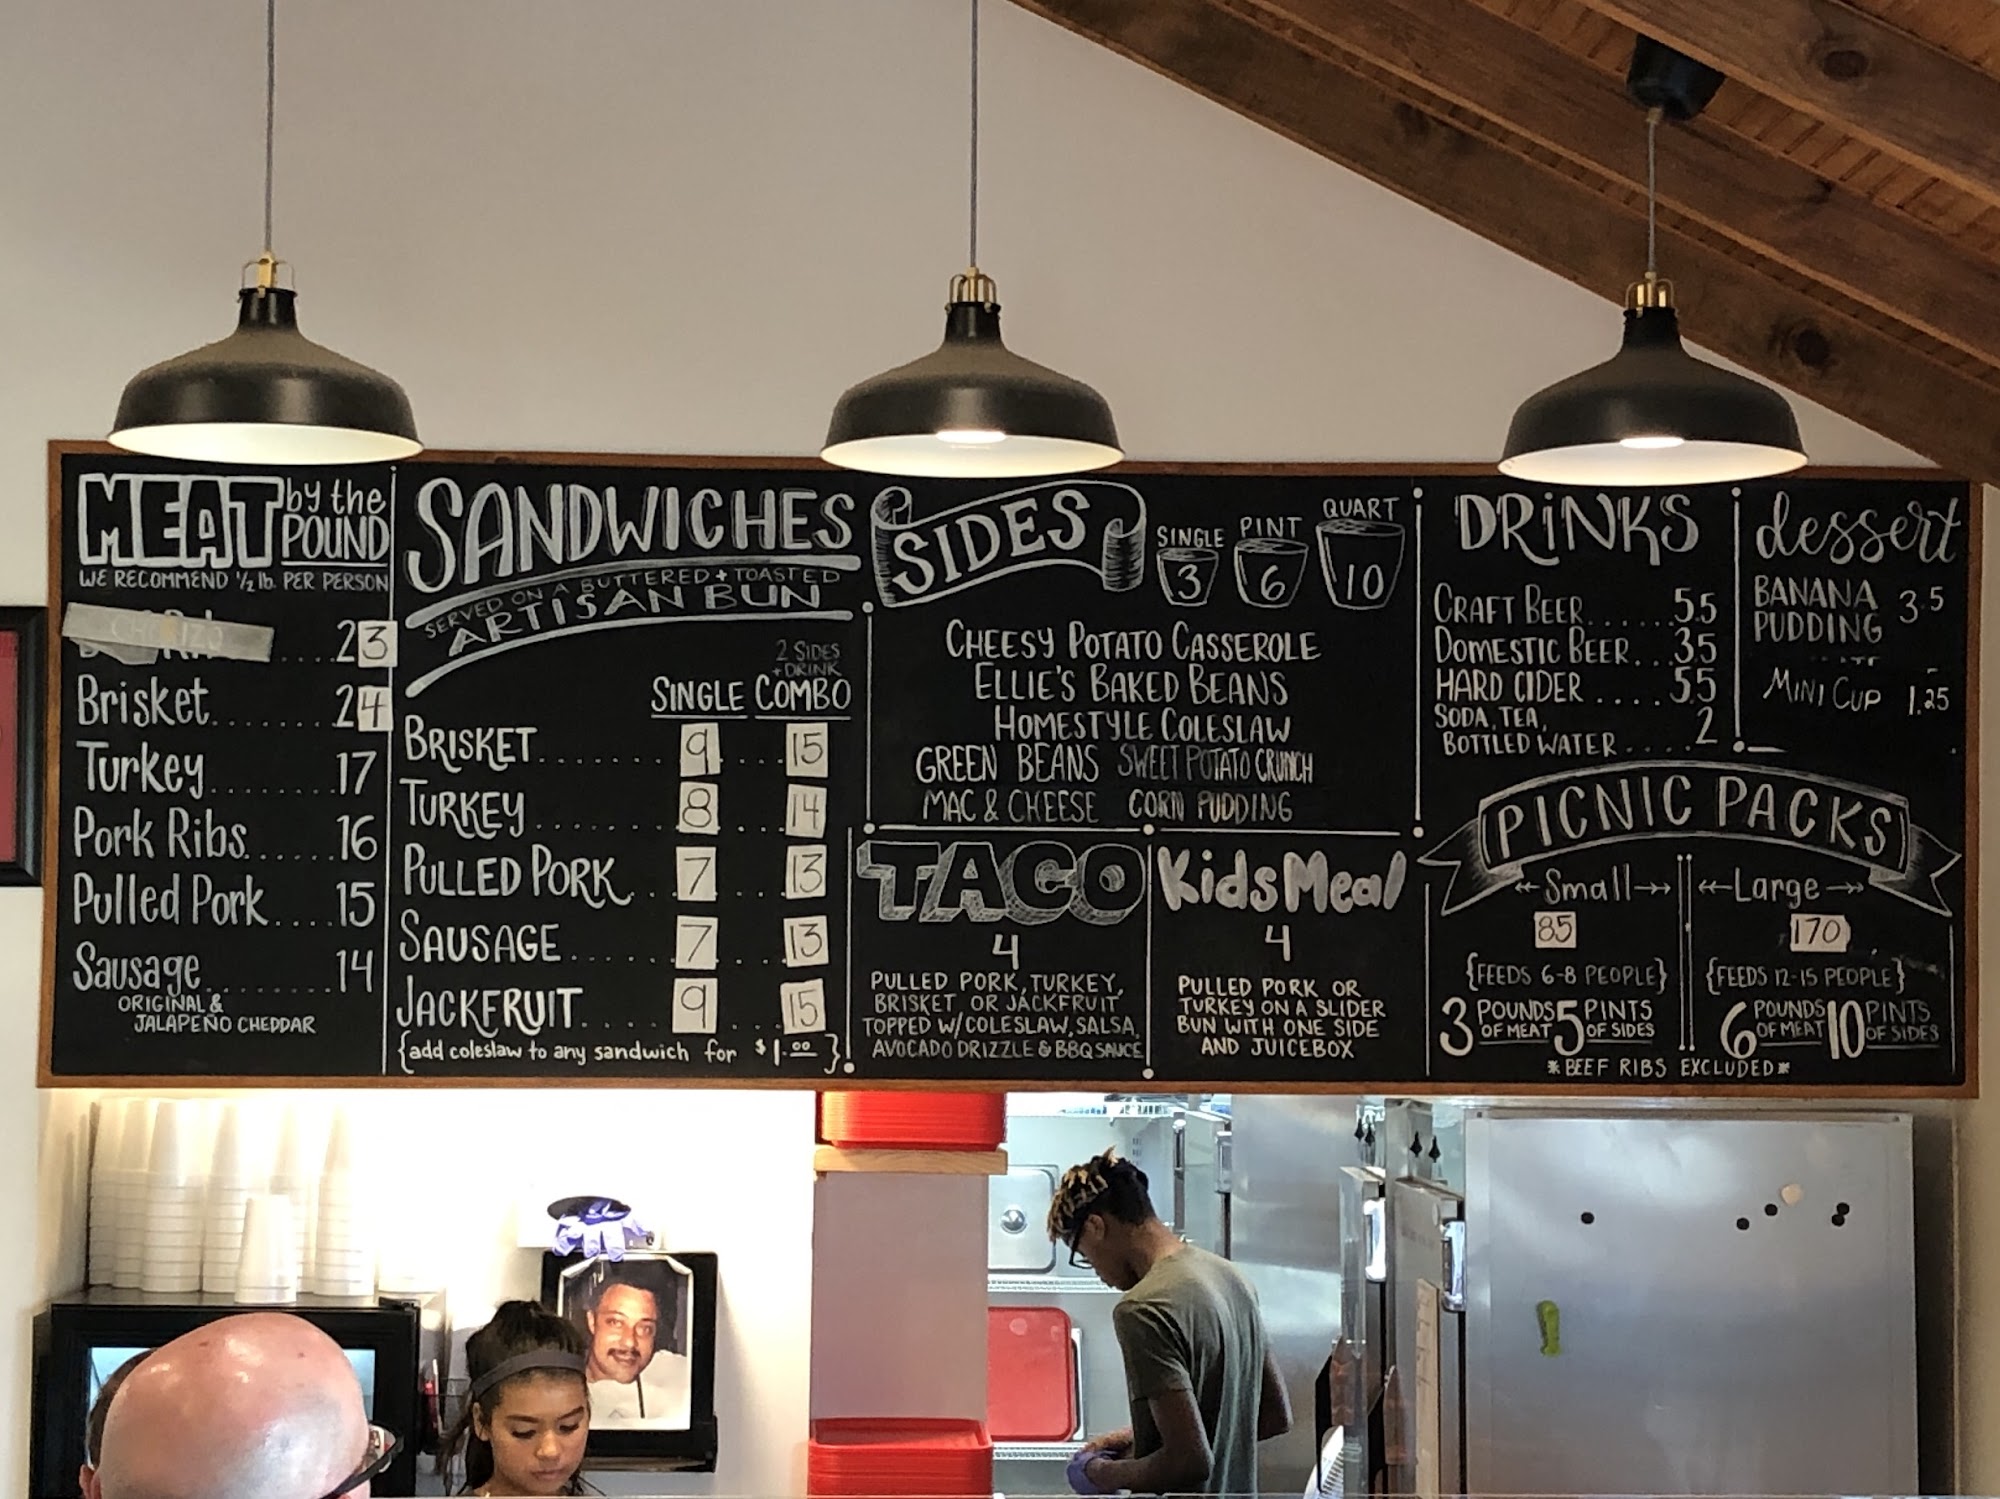 MEAT by the POUND
WE RECOMMEND 1/2 lb. PER PERSON
CHORIZO ....23
Brisket........24
Turkey........17
Pork Ribs......16
Pulled Pork....15
Sausage........14
ORIGINAL &
JALAPEÑO CHEDDAR
SANDWICHES
SERVED ON A BUTTERED + TOASTED
ARTISAN BUN
2 SIDES
+ DRINK
SINGLE COMBO
BRISKET........ 9 ... 15
TURKEY........ 8 ... 14
PULLED PORK.. 7 ... 13
SAUSAGE...... 7 ... 13
JACKFRUIT.... 9 ... 15
{add coleslaw to any sandwich for $1.00}
SIDES
SINGLE PINT QUART
3 6 10
CHEESY POTATO CASSEROLE
ELLIE'S BAKED BEANS
HOMESTYLE COLESLAW
GREEN BEANS SWEET POTATO CRUNCH
MAC & CHEESE CORN PUDDING
TACO
4
PULLED PORK, TURKEY,
BRISKET OR JACKFRUIT
TOPPED W/ COLESLAW, SALSA,
AVOCADO DRIZZLE & BBQ SAUCE
Kids Meal
4
PULLED PORK OR
TURKEY ON A SLIDER
BUN WITH ONE SIDE
AND JUICEBOX
DRiNKS
CRAFT BEER......5.5
DOMESTIC BEER...3.5
HARD CIDER ....5.5
SODA, TEA,
BOTTLED WATER....2
dessert
BANANA
PUDDING 3.5
MINI CUP 1.25
PICNIC PACKS
Small
85
{FEEDS 6-8 PEOPLE}
3 POUNDS OF MEAT 5 PINTS OF SIDES
Large
170
{FEEDS 12-15 PEOPLE}
6 POUNDS OF MEAT 10 PINTS OF SIDES
*BEEF RIBS EXCLUDED*